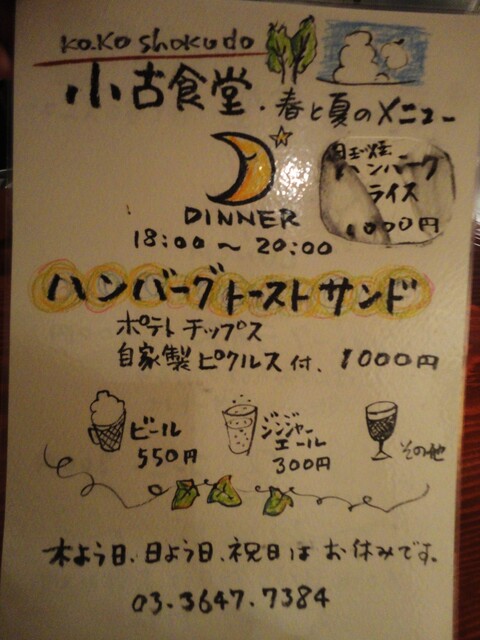 ko.ko shokudo
小古食堂・春と夏のメニュー
目玉焼
ハンバーグ
ライス
1000円
DINNER
18:00〜20:00
ハンバーグトーストサンド
ポテトチップス
自家製ピクルス付、1000円
ビール
550円
ジンジャー
エール
300円
その他
木よう日、日よう日、祝日はお休みです。
03.3647.7384